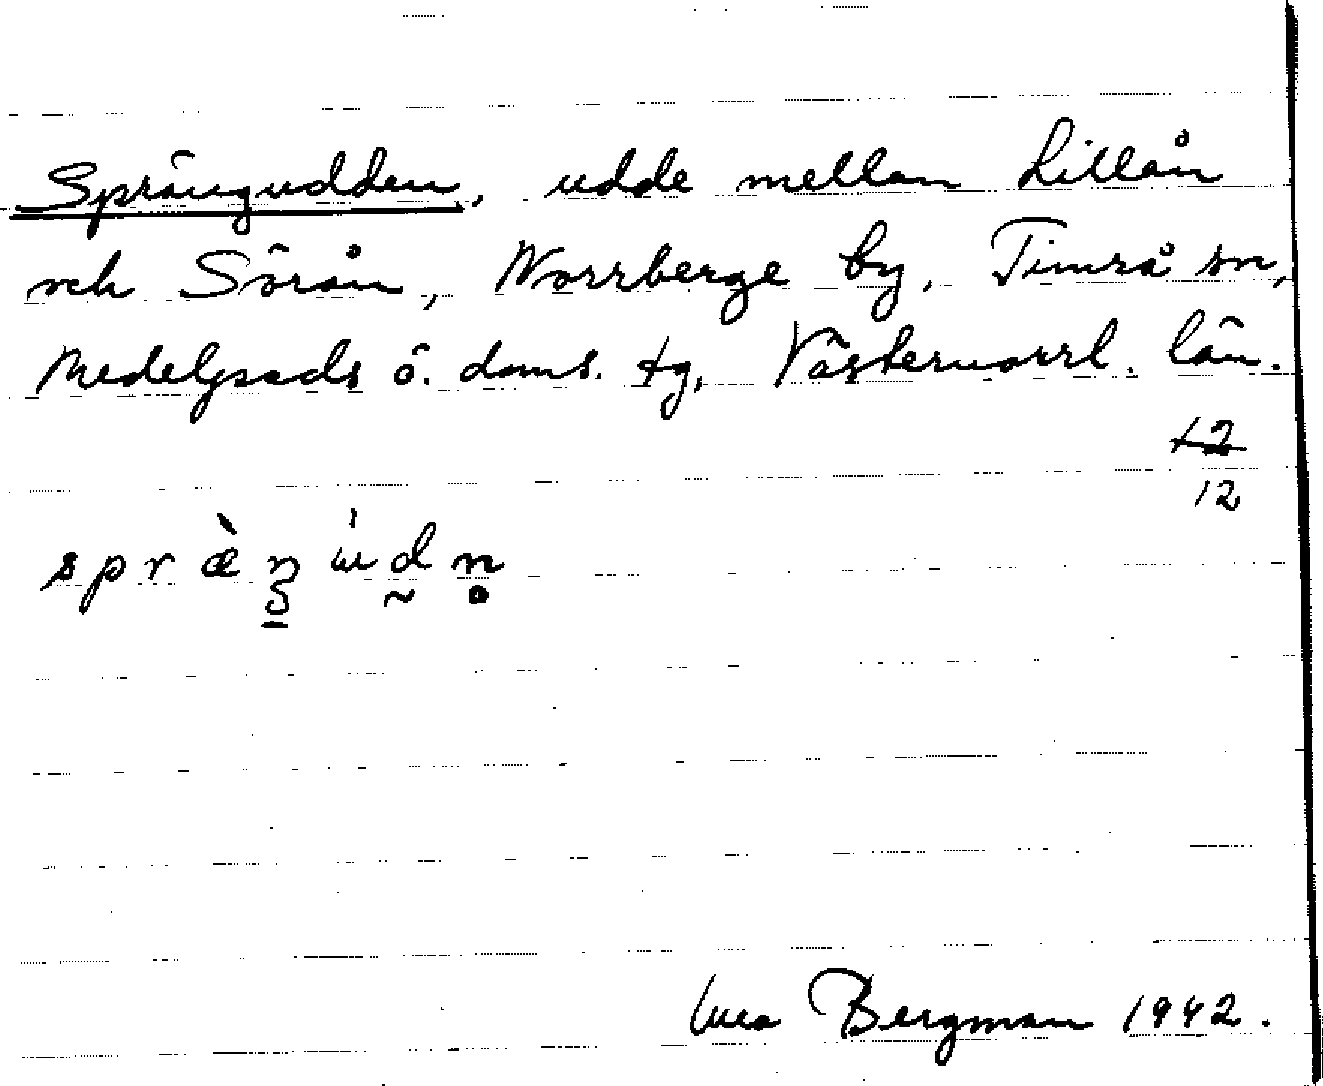 Sprängudden, udde mellan Lillån
och Sörån, Norrberge by, Timrå sn,
Medelpads ö. doms. tg, Västernorrl. län.
12
12
Bergman 1942.